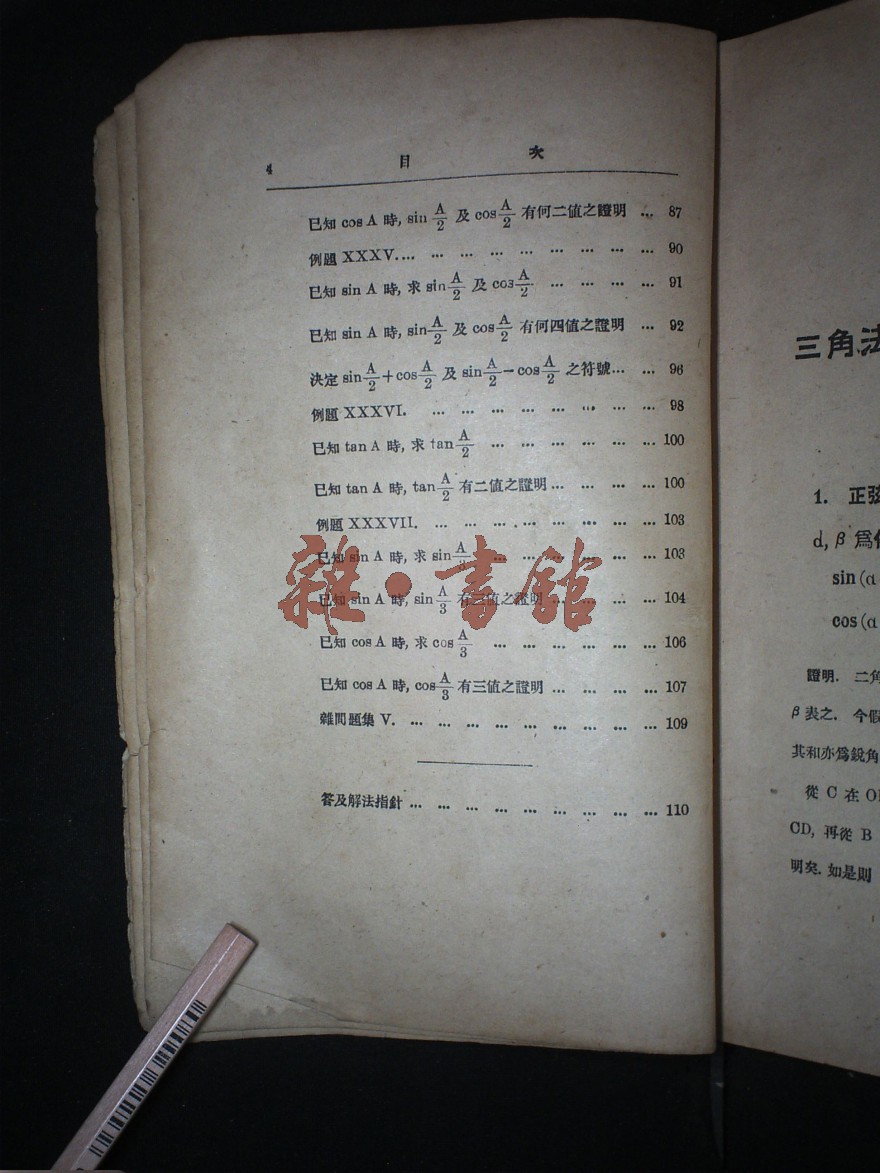 4 目 次
已知 cos A 時, sin A/2 及 cos A/2 有何二值之證明 … 87
例題 XXXV. … … … … … … … … … 90
已知 sin A 時, 求 sin A/2 及 cos A/2 … … … … 91
已知 sin A 時, sin A/2 及 cos A/2 有何四值之證明 … 92
決定 sin A/2 + cos A/2 及 sin A/2 − cos A/2 之符號 … … 96
例題 XXXVI. … … … … … … … … 98
已知 tan A 時, 求 tan A/2 … … … … … … 100
已知 tan A 時, tan A/2 有二值之證明 … … … … 100
例題 XXXVII. … … … … … … … … 103
已知 sin A 時, 求 sin A/3 … … … … … … 103
已知 sin A 時, sin A/3 有三值之證明 … … … … 104
已知 cos A 時, 求 cos A/3 … … … … … … 106
已知 cos A 時, cos A/3 有三值之證明 … … … … 107
雜問題集 V. … … … … … … … … … 109
答及解法指針 … … … … … … … … … 110
雜·書館
三角法
1. 正弦
d, β 爲
sin (α
cos (α
證明. 二角
β 表之. 今假
其和亦爲銳角
從 C 在 O
CD, 再從 B
明矣. 如是則